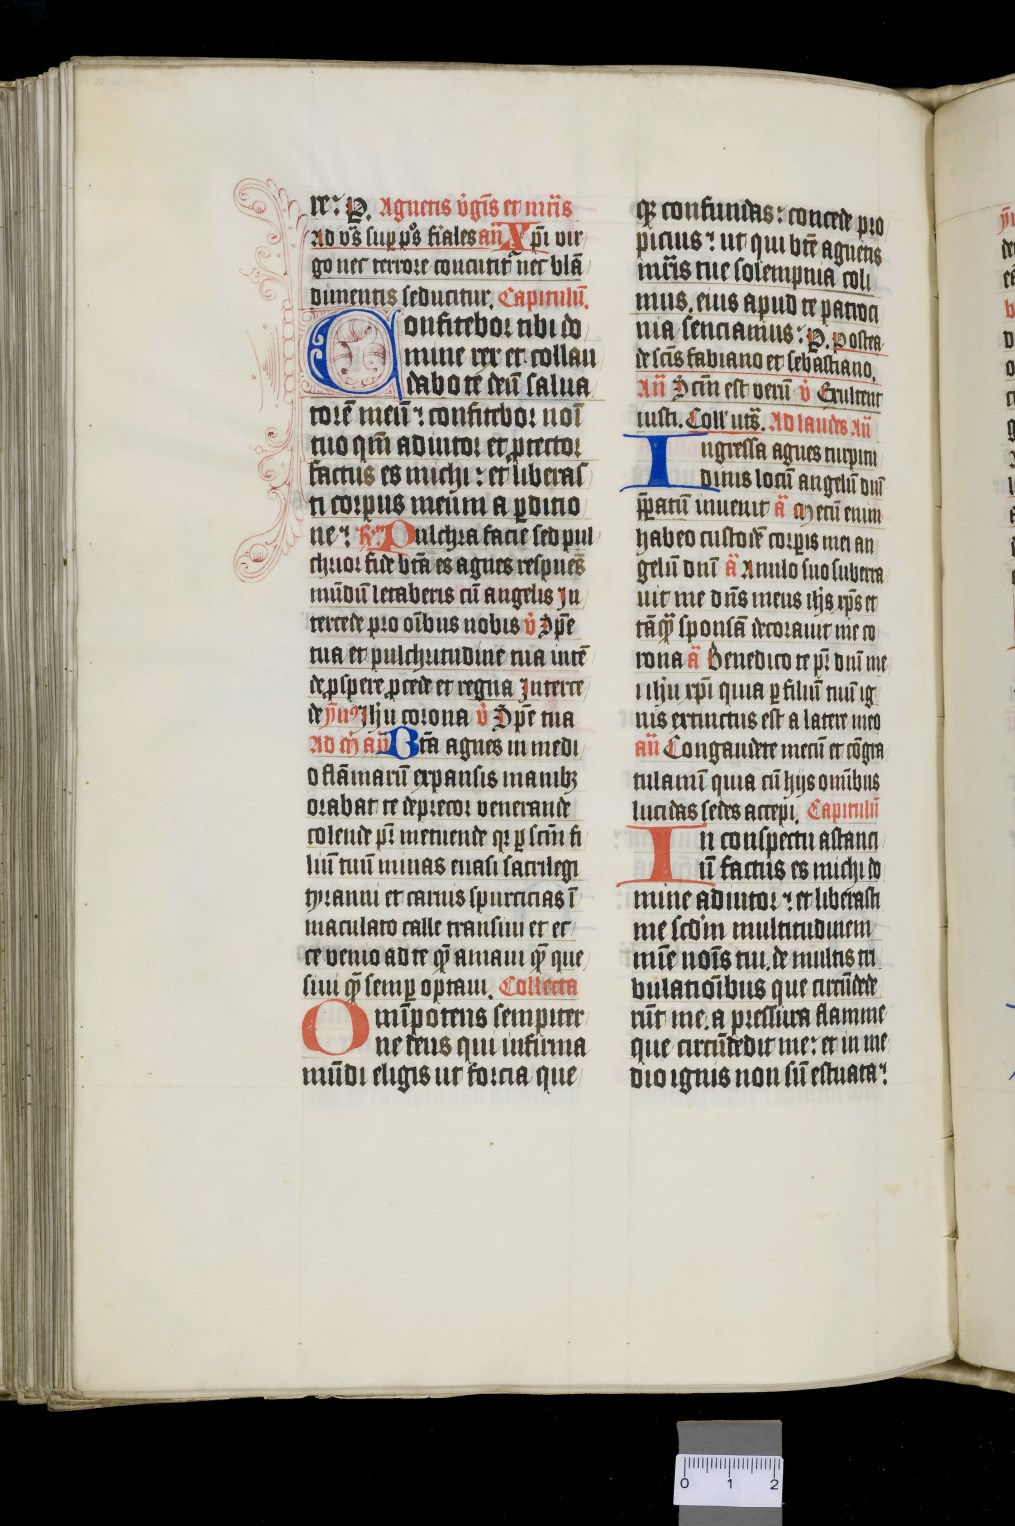 re: P. Agnetis v̊gīs et mr̄is
Ad vs̄ sup p̄s fīales an̄ Xp̄i vir
go nec terrore concutit̄ nec blā
dimentis seducitur. Capitulū.
Confitebor tibi do
mine rex et collau
dabo te deū salua
torē meū: confitebor noī
tuo qm̄ adiutor et ꝓtector
factus es michi: et liberas
ti corpus meum a ꝑditio
ne: R̄ Pulchra facie sed pul
chrior fide bt̄a es agnes respues̄
mūdū letaberis cū angelis In
tercede pro oībus nobis v̊ Sp̄e
tua et pulchritudine tua intē
de ꝓspere ꝓcede et regna Interce
de ȳnꝰ Ihū corona v̊ Sp̄e tua
Ad m̄ an̄ Bt̄a agnes in medi
o flāmarū expansis manibꝫ
orabat te deprecor venerande
colende pr̄ metuende qr ꝑ scm̄ fi
liū tuū minas euasi sacrilegi
tyranni et carnis spurcicias ī
maculato calle transiui et ec
ce venio ad te qm̄ amaui qm̄ que
siui qm̄ semꝑ optaui. Collecta
Omīpotens sempiter
ne deus qui infirma
mūdi eligis ut forcia que
qꝫ confundas: concede pro
picius: ut qui bt̄e agnetis
mr̄is tue solempnia coli
mus. eius apud te patroci
nia senciamus: P. Postea
de scīs fabiano et sebastiano.
An̄ Scīm est verū v̊ Exultent
iusti. Coll' uts̄. Ad laudes An̄
Ingressa agnes turpitu
dinis locū angelū dnī
p̄paratū inuenit ā Mecū enim
habeo custodē corꝑis mei an
gelū dnī ā Anulo suo suberra
uit me dn̄s meus ihs xp̄s et
tāqm̄ sponsā decorauit me co
rona ā Benedico te pr̄ dnī me
i ihū xp̄i quia ꝑ filiū tuū ig
nis extinctus est a latere meo
an̄ Congaudete mecū et cōgra
tulaminī quia cū hijs omībus
lucidas sedes accepi. Capitulū
In conspectu astanci
ū factus es michi do
mine adiutor: et liberasti
me scdm̄ multitudinem
mīe noīs tui. de multis tri
bulatioībus que circūdede
rūt me. a pressura flamme
que circūdedit me: et in me
dio ignis non sū estuata: